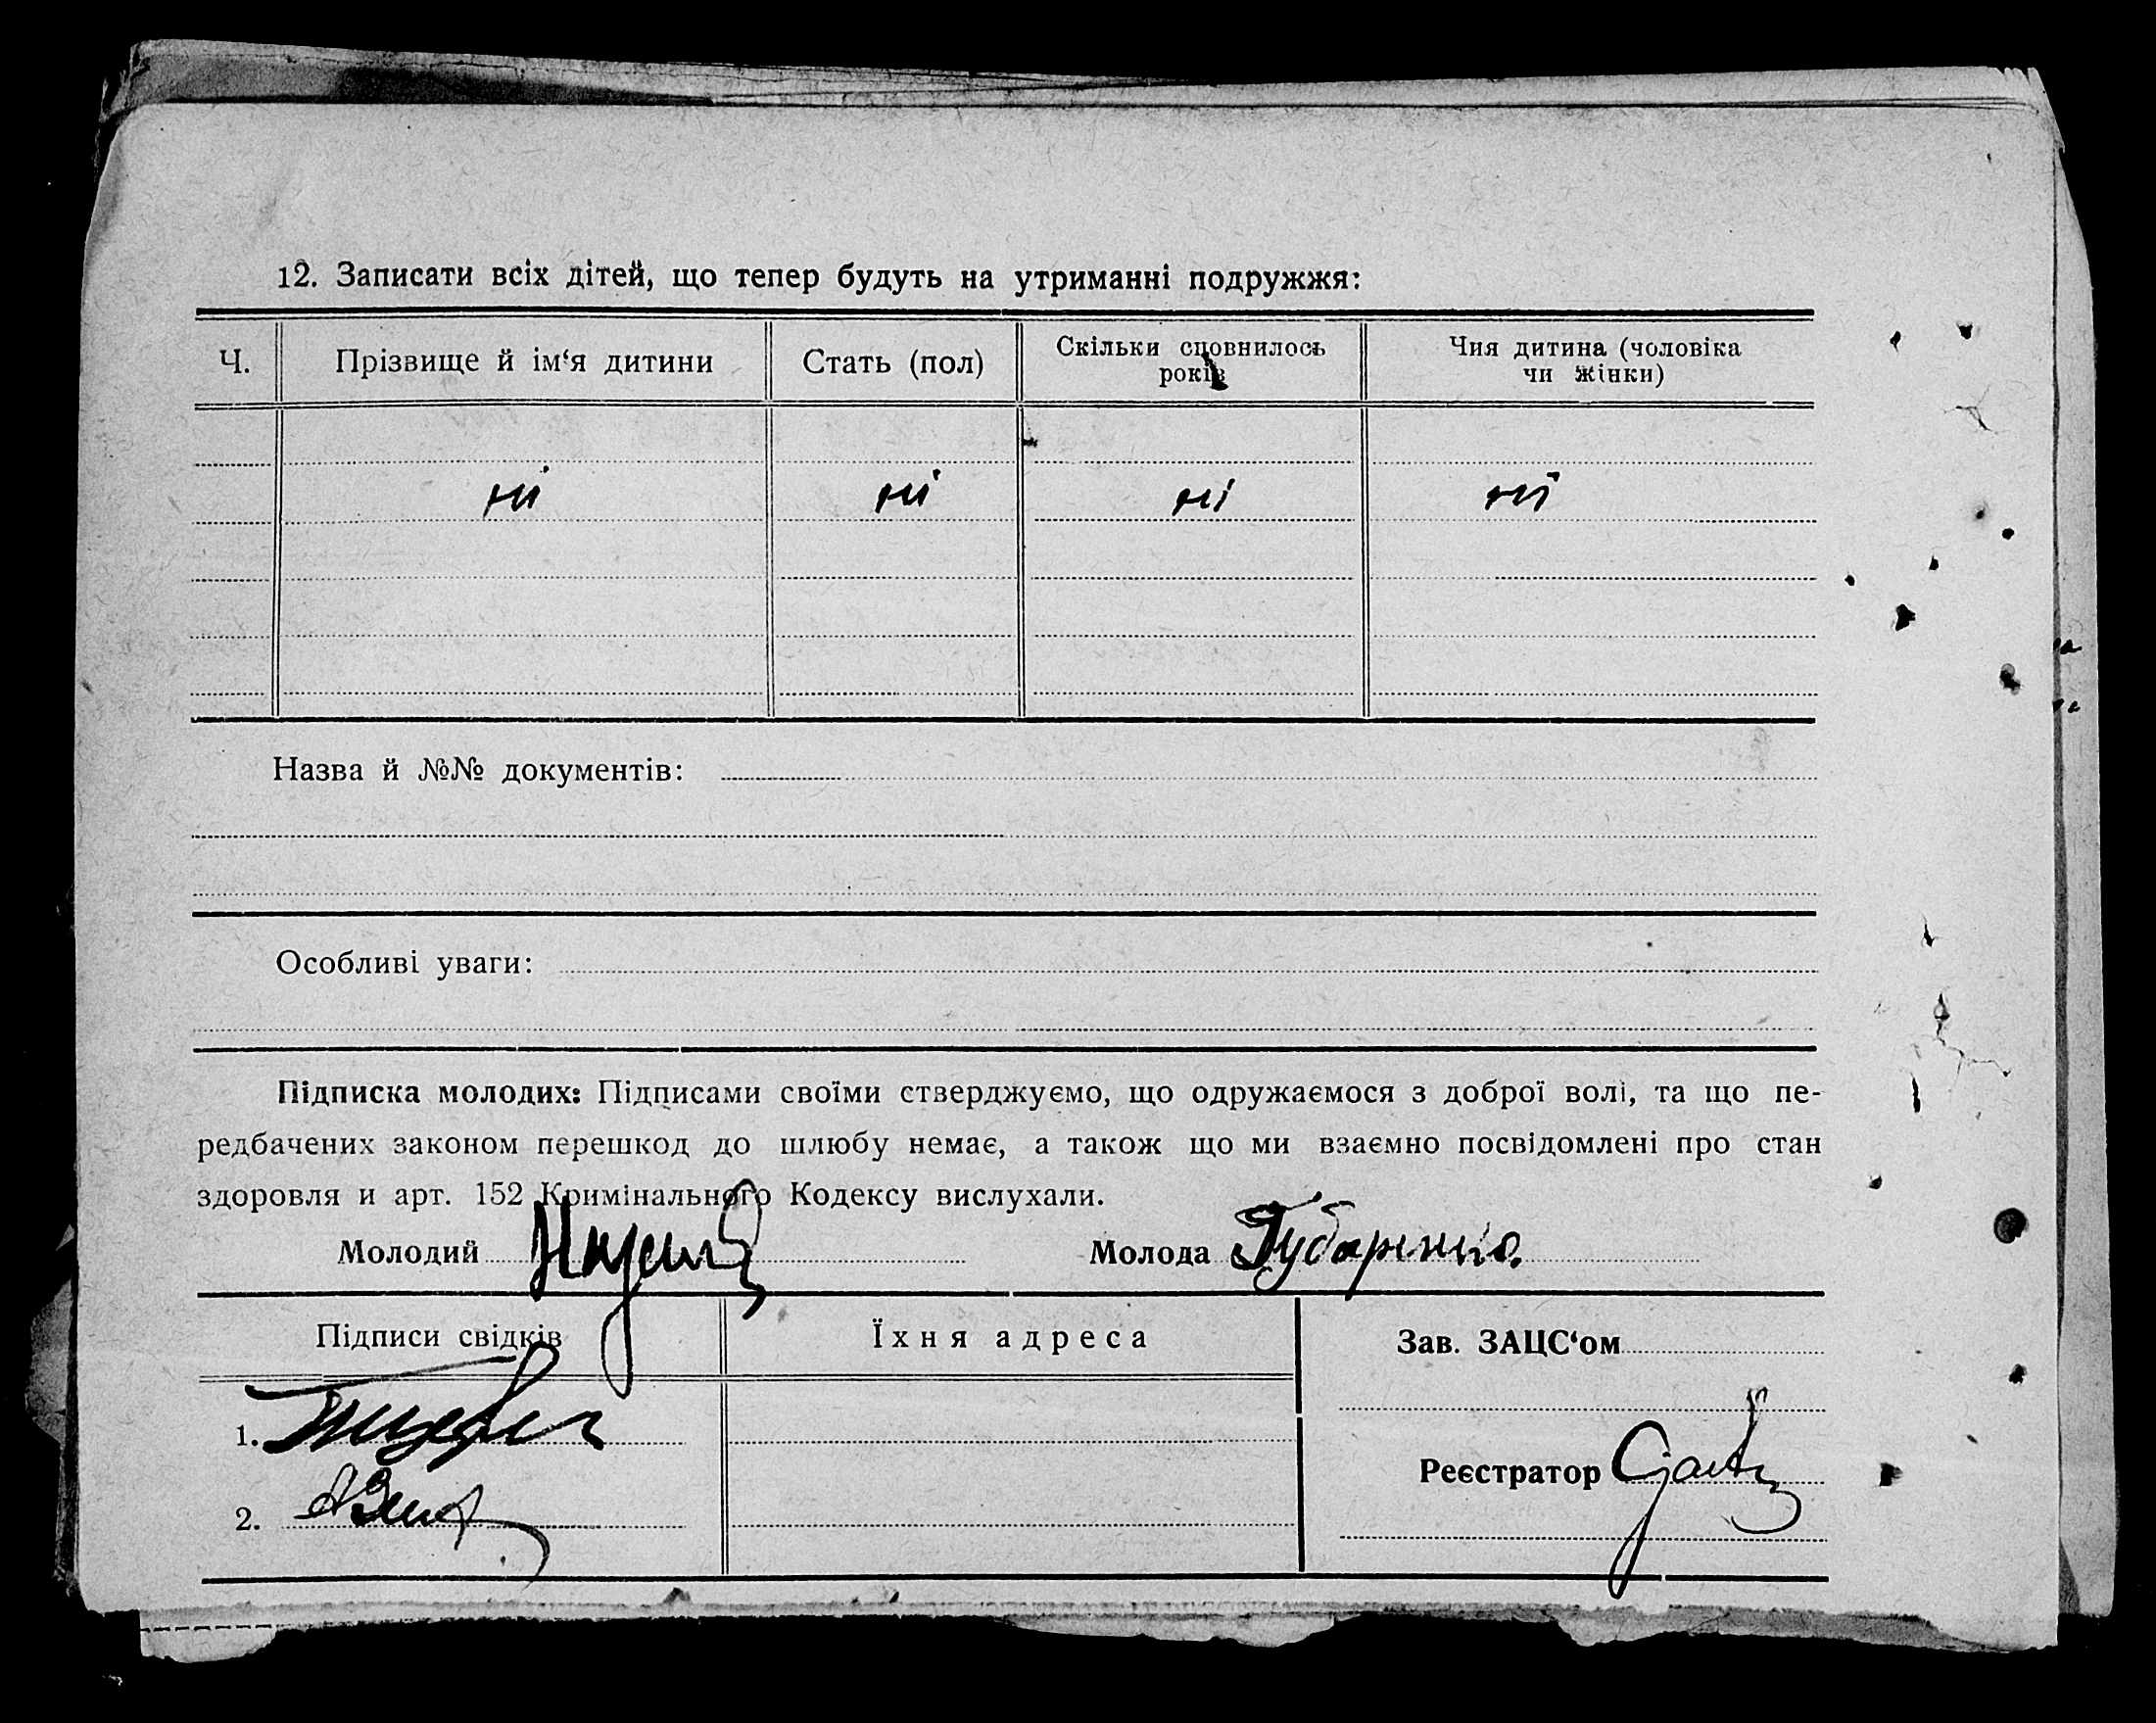 12. Записати всіх дітей, що тепер будуть на утриманні подружжя:
Ч. Прізвище й ім‘я дитини Стать (пол) Скільки сповнилось років Чия дитина (чоловіка чи жінки)
ні ні ні ні
Назва й №№ документів:
Особливі уваги:
Підписка молодих: Підписами своїми стверджуємо, що одружаємося з доброї волі, та що пе-
редбачених законом перешкод до шлюбу немає, а також що ми взаємно посвідомлені про стан
здоровля и арт. 152 Кримінального Кодексу вислухали.
Молодий Молода Губаренко.
Підписи свідків Їхня адреса Зав. ЗАЦС‘ом
1.
Реєстратор
2.